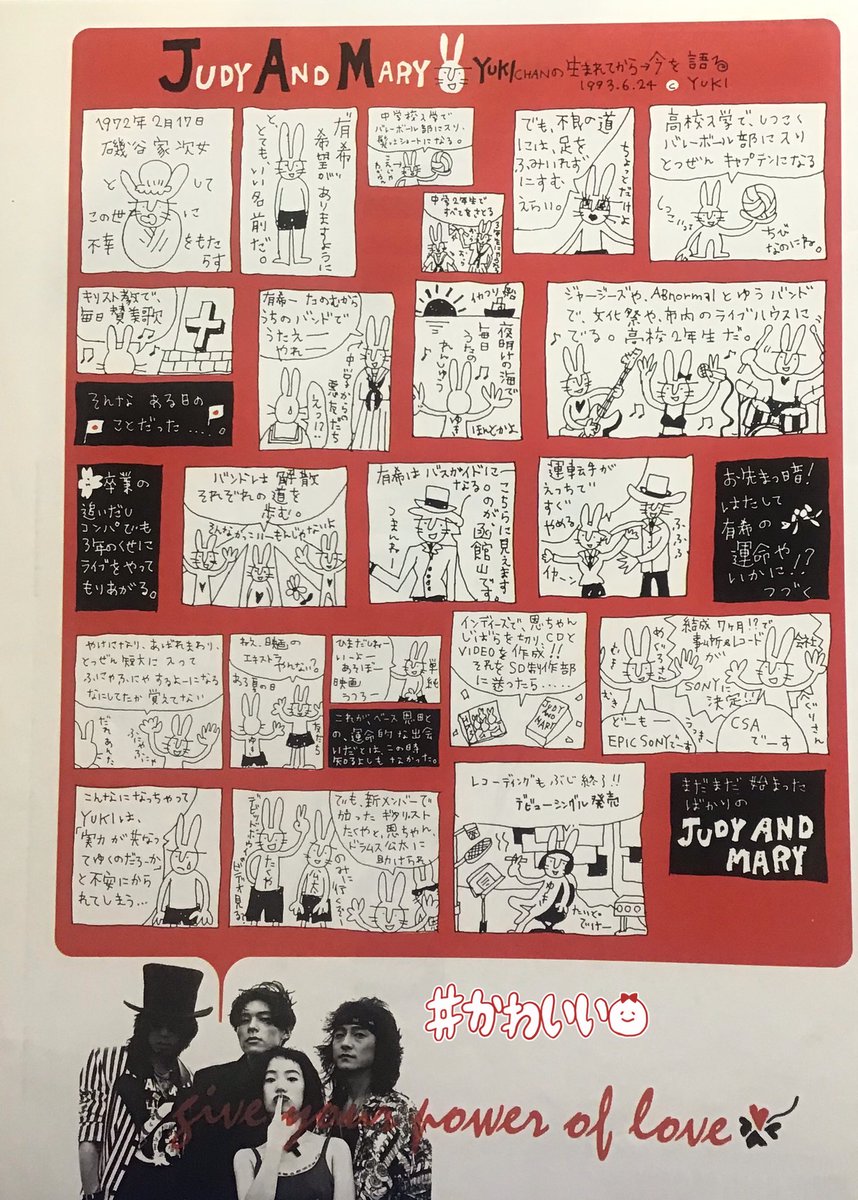 JUDY AND MARY YUKI CHANの生まれてから→今を語る
1993.6.24 © YUKI
1972年2月17日
磯谷家次女
として
この世に
不幸をもた
らす
有希
希望がありますように
と、
とても、いい名前だ。
中学校入学で
バレーボール部に入り、
髪もショートになる。
中学2年生で
すべてをさとる
でも、不良の道
には、足を
ふみいれず
にすむ
えらい。
ちょっとだけよ
高校入学で、しつこく
バレーボール部に入り
とつぜん キャプテンになる
しつこいって
ちび
なのにね。
キリスト教で、
毎日賛美歌
そんな ある日の
ことだった.....。
有希〜たのむから
うちのバンドで
うたえー
やれー
中学からの
悪友だち
えっ!?
イカつり船
夜明けの海で
毎日
うたの
れんしゅう
ゆき
ほんとかよ
ジャージーズや、Abnormalとゆうバンド
で、文化祭や、市内のライブハウスに
でる。高校2年生だ。
卒業の
追いだし
コンパでも
3年のくせに
ライブをやって
もりあがる。
バンドは解散
それぞれの道を
歩む。
そんなかっこいーもんじゃないよ
有希はバスガイドに
なる。
こちらに見えます
のが、函館山です。
つまんねー
運転手が
えっちで
すぐ
やめる
イヤーン
ふふふ
お先まっ暗!
はたして
有希の
運命や
いかに!!?
つづく
やけになり、あばれまわり、
とつぜん短大に入って
ふにゃふにゃするよーになる
なにしてたか覚えてない
だれ あんた
ふにゃふにゃ
ねえ、映画の
エキストラやんない?
ある夏の日
ゆき
友だち
ひまだしね
いーよー
あろばー
映画
うつろー
単純
これが、ベース恩田と
の、運命的な出会
いだとは、この時
知るよしもなかった。
インディーズで、恩ちゃん
じばらを切り、CDと
VIDEOを作成!!
それをSD制作部
に送ったら......
JUDY AND MARY
結成7ヶ月!!?で
事ム所&レコード会社
が
SONYに
決定!!
めぐろさん
どーもー
EPIC SONYでーす
CSA
でーす
こんなになっちゃって
YUKIは、
「実力が共なって
ゆくのだろっか」
と不安にから
れてしまう...
でも、新メンバーで
加わったギタリスト
たくやと、恩ちゃん、
ドラムス公太に
助けられ
のみに行くぞー
たくや
公太
ビデオ見る?
レコーディングもぶじ終了!!
デビューシングル発売
ゆき
たいと。
でけー
まだまだ始まった
ばかりの
JUDY AND
MARY
#かわいい
give your power of love